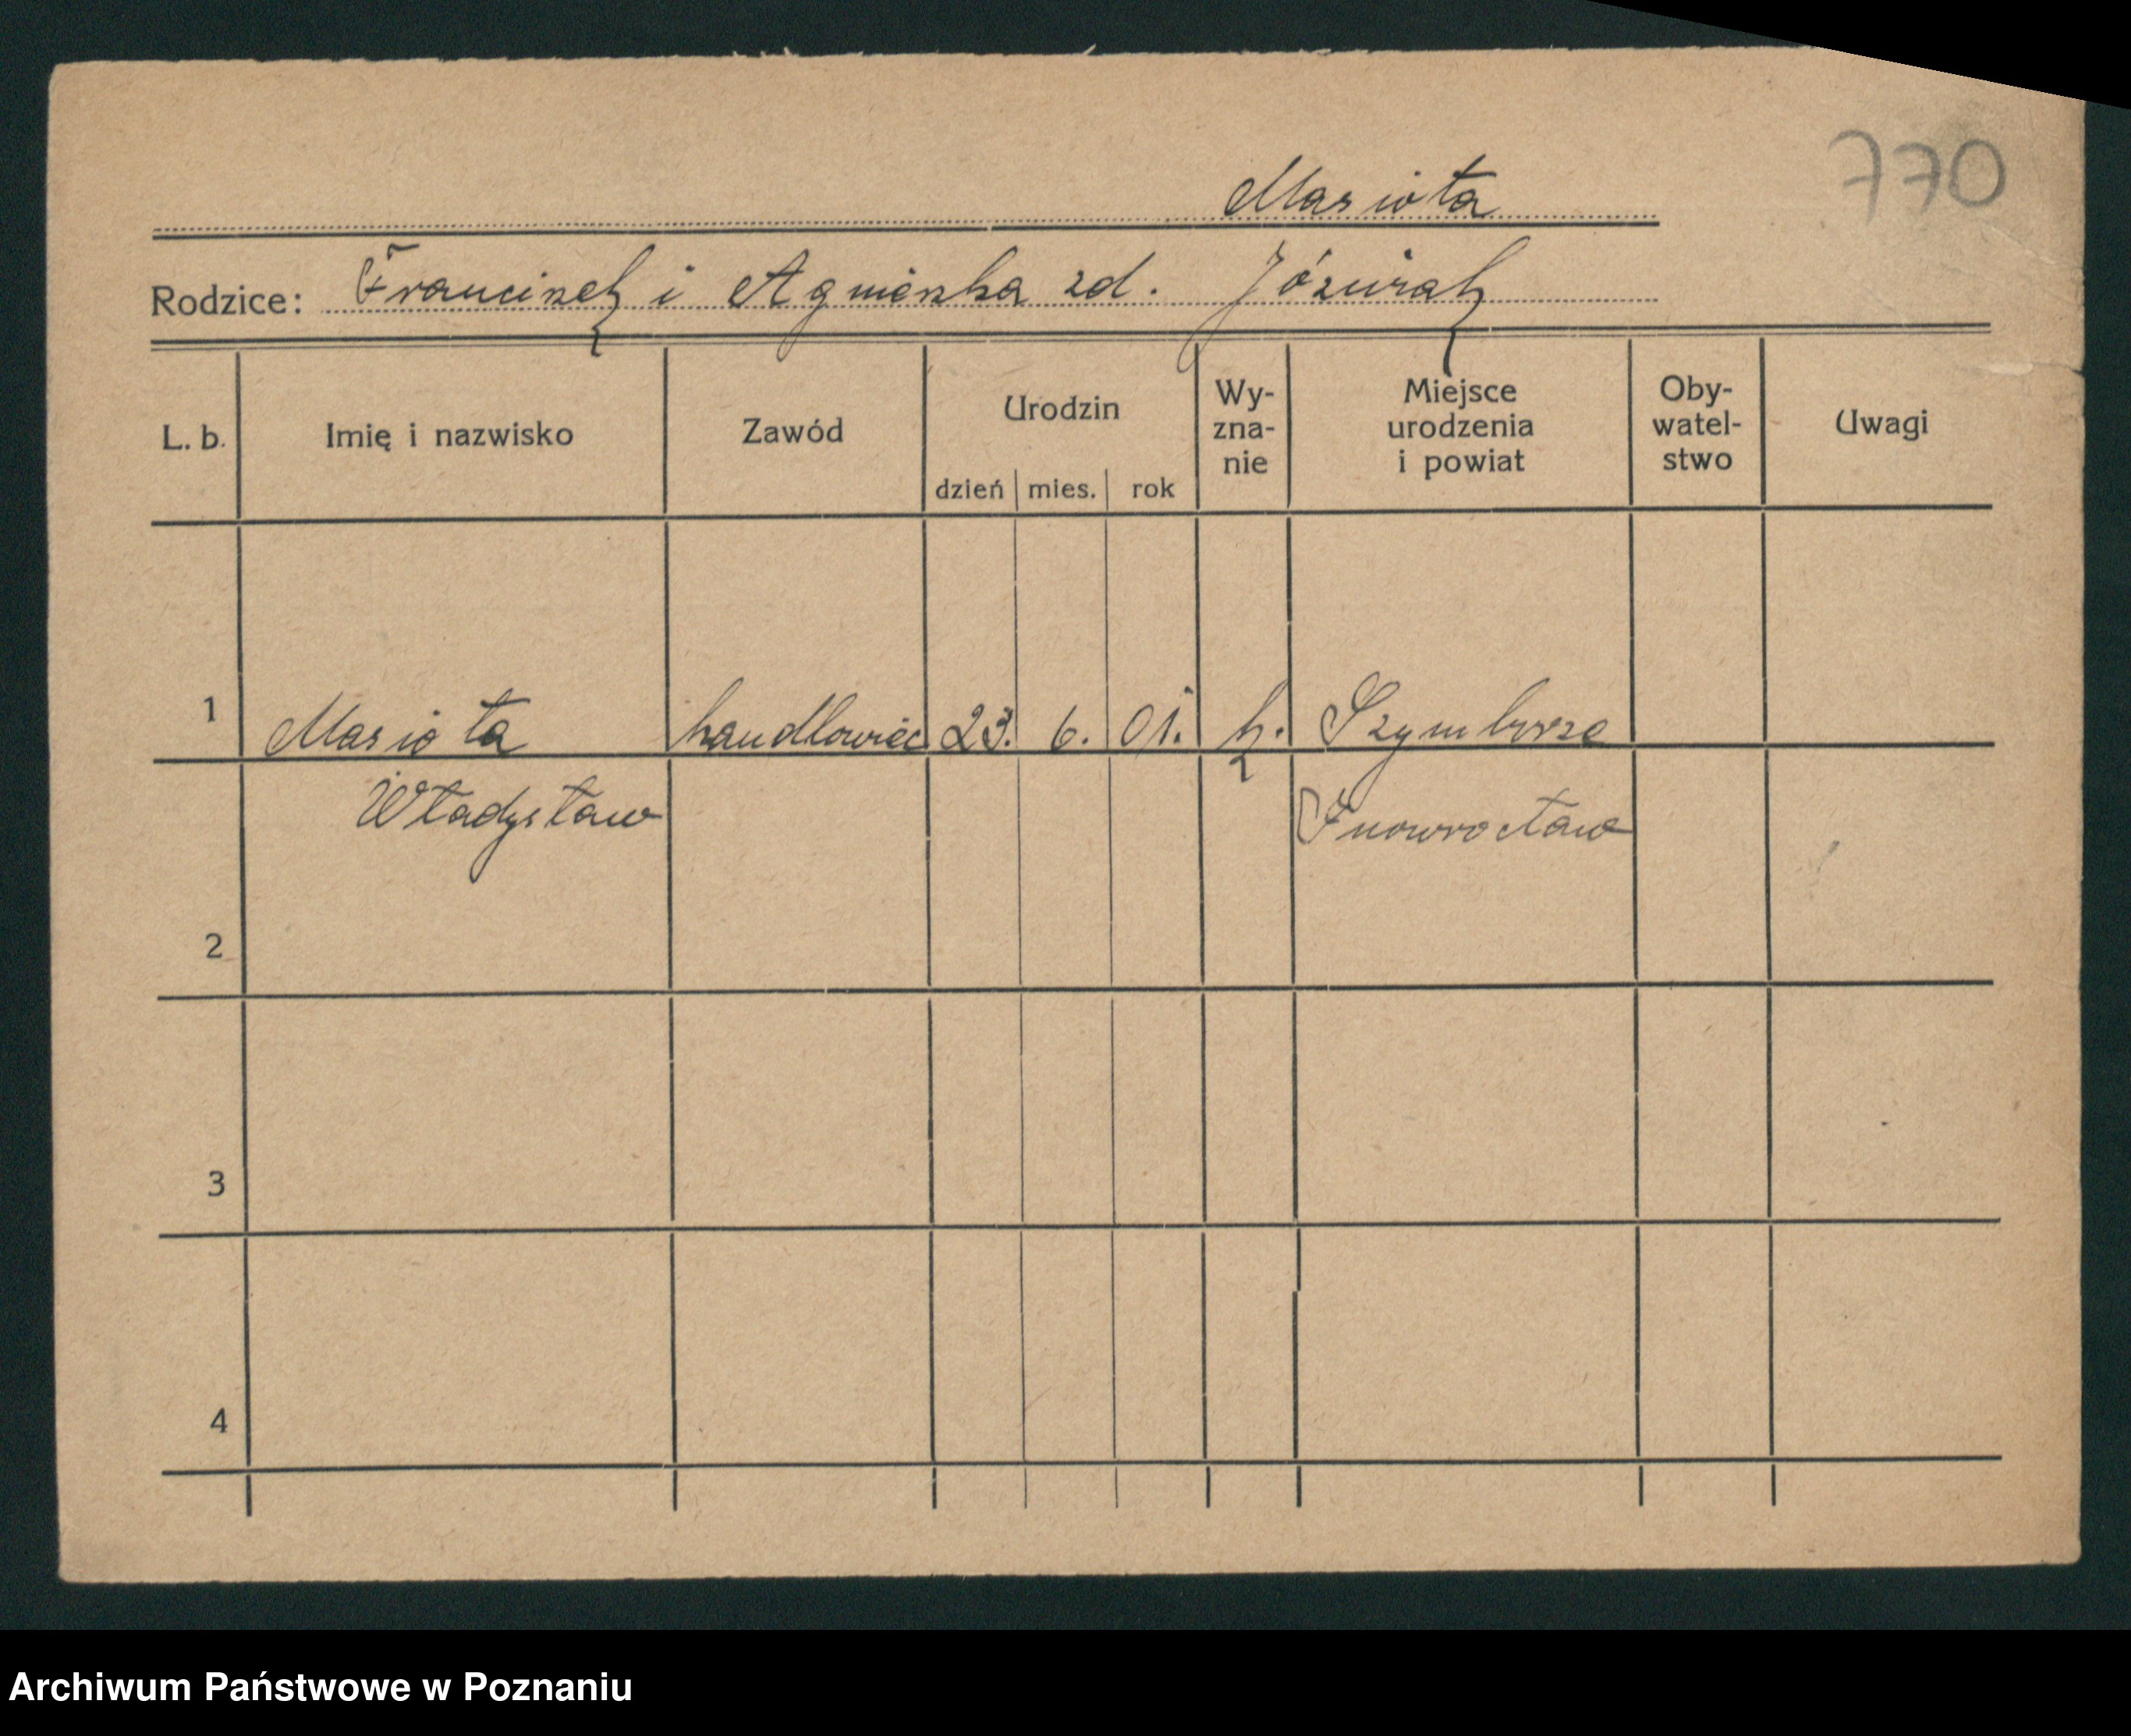 770
Masiota
Rodzice: Franciszek i Agnieszka zd. Józwiak
L. b. Imię i nazwisko Zawód Urodzin dzień mies. rok Wy-zna-nie Miejsce urodzenia i powiat Oby-watel-stwo Uwagi
1 Masiota handlowiec 23. 6. 01. k. Szymborze
Władysław Inowrocław
2
3
4
Archiwum Państwowe w Poznaniu